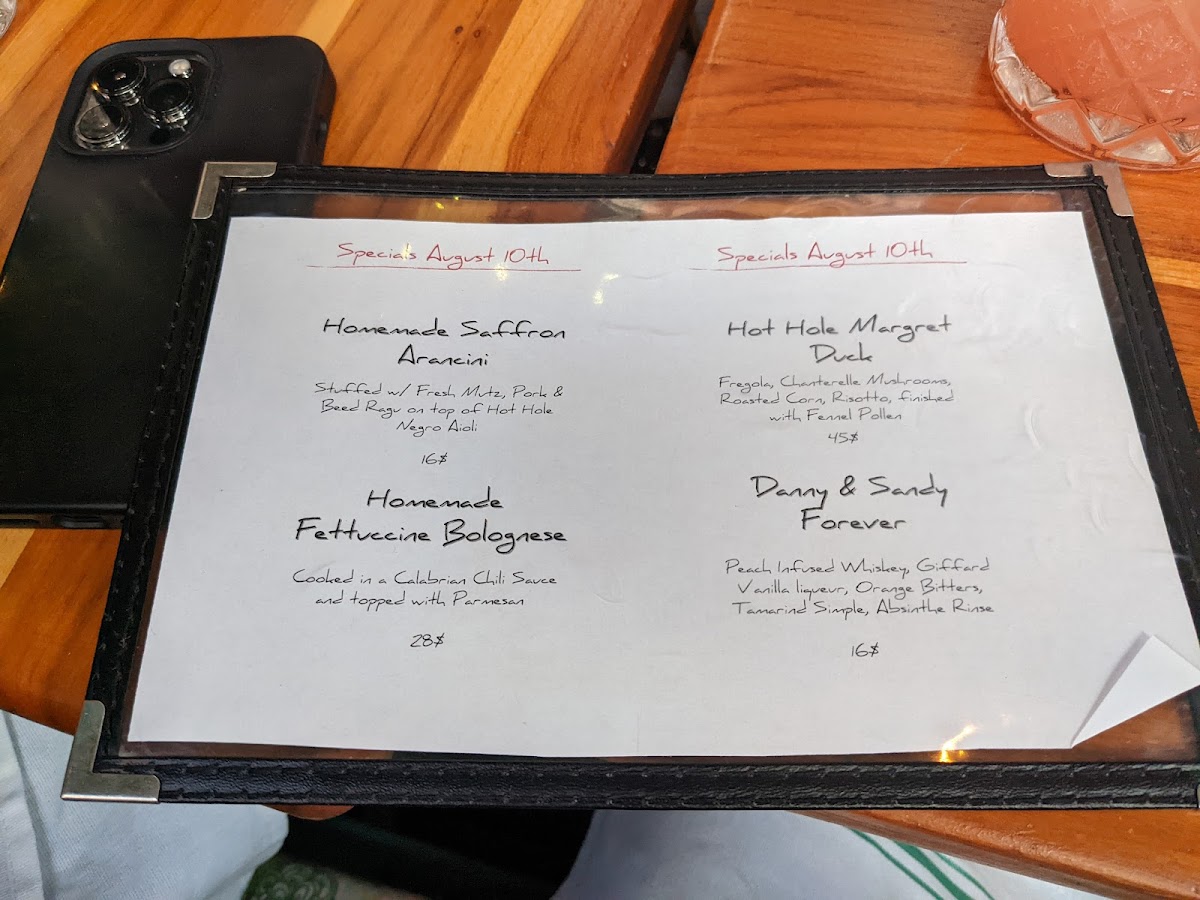 Specials August 10th
Homemade Saffron
Arancini
Stuffed w/ Fresh Mutz, Pork &
Beed Ragu on top of Hot Hole
Negro Aioli
16$
Homemade
Fettuccine Bolognese
Cooked in a Calabrian Chili Sauce
and topped with Parmesan
28$
Specials August 10th
Hot Hole Margret
Duck
Fregola, Chanterelle Mushrooms,
Roasted Corn, Risotto, finished
with Fennel Pollen
45$
Danny & Sandy
Forever
Peach Infused Whiskey, Giffard
Vanilla liqueur, Orange Bitters,
Tamarind Simple, Absinthe Rinse
16$